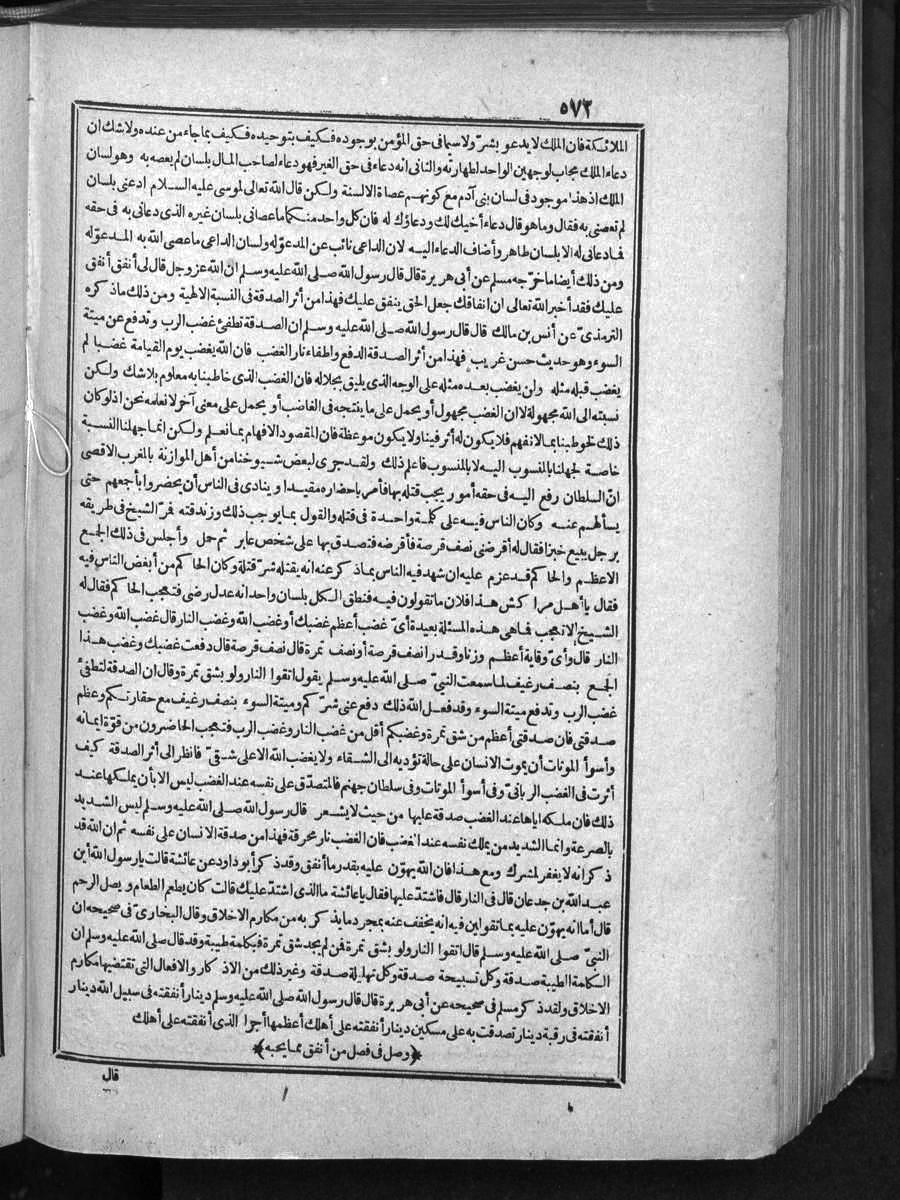 ٥٧٢
الملائكة فان الملك لا يدعو بشرّ ولا سيما فى حق المؤمن بوجوده فكيف بتوحيده فكيف بما جاء من عنده ولا شك ان
دعاء الملك مجاب لوجهين الواحد لطهارته والثانى انه دعاء فى حق الغير فهو دعاء لصاحب المال بلسان لم يعصه به وهو لسان
الملك اذ هذا موجود فى لسان بنى آدم مع كونهم عصاة الالسنة ولكن قال الله تعالى لموسى عليه السلام ادعنى بلسان
لم تعصنى به فقال وما هو قال دعاء أخيك لك ودعاؤك له فان كل واحد منكما ما عصانى بلسان غيره الذى دعانى به فى حقه
فما دعانى له الا بلسان طاهر وأضاف الدعاء اليه لان الداعى نائب عن المدعوّ له ولسان الداعى ما عصى الله به المدعوّ له
ومن ذلك أيضا ما خرّجه مسلم عن أبى هريرة قال قال رسول الله صلى الله عليه وسلم ان الله عز وجل قال لى أنفق أنفق
عليك فقد أخبر الله تعالى ان انفاقك جعل الحق ينفق عليك فهذا من أثر الصدقة فى النسبة الالهية ومن ذلك ما ذكره
الترمذىّ عن أنس بن مالك قال قال رسول الله صلى الله عليه وسلم ان الصدقة تطفئ غضب الرب وتدفع عن ميتة
السوء وهو حديث حسن غريب فهذا من أثر الصدقة الدفع واطفاء نار الغضب فان الله يغضب يوم القيامة غضبا لم
يغضب قبله مثله ولن يغضب بعده مثله على الوجه الذى يليق بجلاله فان الغضب الذى خاطبنا به معلوم بلا شك ولكن
نسبته الى الله مجهولة لا ان الغضب مجهول أو يحمل على ما ينتجه فى الغاضب أو يحمل على معنى آخر لا نعلمه نحن اذ لو كان
ذلك لخوطبنا بما لا نفهم فلا يكون له أثر فينا ولا يكون موعظة فان المقصود الافهام بما نعلم ولكن انما جهلنا النسبة
خاصة لجهلنا بالمنسوب اليه لا بالمنسوب فاعلم ذلك ولقد جرى لبعض شيوخنا من أهل الموازنة بالمغرب الاقصى
انّ السلطان رفع اليه فى حقه أمور يجب قتله بها فأمر باحضاره مقيدا وينادى فى الناس أن يحضروا بأجمعهم حتى
يسألهم عنه وكان الناس فيه على كلمة واحدة فى قتله والقول بما يوجب ذلك وزندقته فمرّ الشيخ فى طريقه
برجل يبيع خبزا فقال له أقرضنى نصف قرصة فأقرضه فتصدق بها على شخص عابر ثم حمل وأجلس فى ذلك الجمع
الاعظم والحاكم قد عزم عليه ان شهد فيه الناس بما ذكر عنه انه يقتله شرّ قتلة وكان الحاكم من أبغض الناس فيه
فقال يا أهل مراكش هذا فلان ما تقولون فيه فنطق الكل بلسان واحد انه عدل رضى فتعجب الحاكم فقال له
الشيخ لا تعجب فما هى هذه المسئلة بعيدة أىّ غضب أعظم غضبك أو غضب الله وغضب النار قال غضب الله وغضب
النار قال وأىّ وقاية أعظم وزنا وقدرا نصف قرصة أو نصف تمرة قال نصف قرصة قال دفعت غضبك وغضب هذا
الجمع بنصف رغيف لما سمعت النبىّ صلى الله عليه وسلم يقول اتقوا النار ولو بشق تمرة وقال ان الصدقة لتطفئ
غضب الرب وتدفع ميتة السوء وقد فعل الله ذلك دفع عنى شركم وميتة السوء بنصف رغيف مع حقارتكم وعظم
صدقتى فان صدقتى أعظم من شق تمرة وغضبكم أقل من غضب النار وغضب الرب فتعجب الحاضرون من قوّة ايمانه
وأسوأ الموتات أن يموت الانسان على حالة تؤديه الى الشقاء ولا يغضب الله الا على شقىّ فانظر الى أثر الصدقة كيف
أثرت فى الغضب الربانىّ وفى أسوأ الموتات وفى سلطان جهنم فالمتصدّق على نفسه عند الغضب ليس الا بأن يملكها عند
ذلك فان ملكه اياها عند الغضب صدقة عليها من حيث لا يشعر قال رسول الله صلى الله عليه وسلم ليس الشديد
بالصرعة وانما الشديد من يملك نفسه عند الغضب فان الغضب نار محرقة فهذا من صدقة الانسان على نفسه ثم ان الله قد
ذكر انه لا يغفر لمشرك ومع هذا فان الله يهوّن عليه بقدر ما أنفق وقد ذكر أبو داود عن عائشة قالت يا رسول الله أين
عبد الله بن جدعان قال فى النار قال فاشتدّ عليها فقال يا عائشة ما الذى اشتدّ عليك قالت كان يطعم الطعام ويصل الرحم
قال أما انه يهوّن عليه بما تقولين فيه انه مخفف عنه بمجرد ما يذكر به من مكارم الاخلاق وقال البخارىّ فى صحيحه ان
النبىّ صلى الله عليه وسلم قال اتقوا النار ولو بشق تمرة فمن لم يجد شق تمرة فبكلمة طيبة وقد قال صلى الله عليه وسلم ان
الكلمة الطيبة صدقة وكل تسبيحة صدقة وكل تهليلة صدقة وغير ذلك من الاذكار والافعال التى تقتضيها مكارم
الاخلاق ولقد ذكر مسلم فى صحيحه عن أبى هريرة قال قال رسول الله صلى الله عليه وسلم دينار أنفقته فى سبيل الله دينار
أنفقته فى رقبة دينار تصدقت به على مسكين دينار أنفقته على أهلك أعظمها أجرا الذى أنفقته على أهلك
﴿وصل فى فصل من أنفق مما يحبه﴾
قال